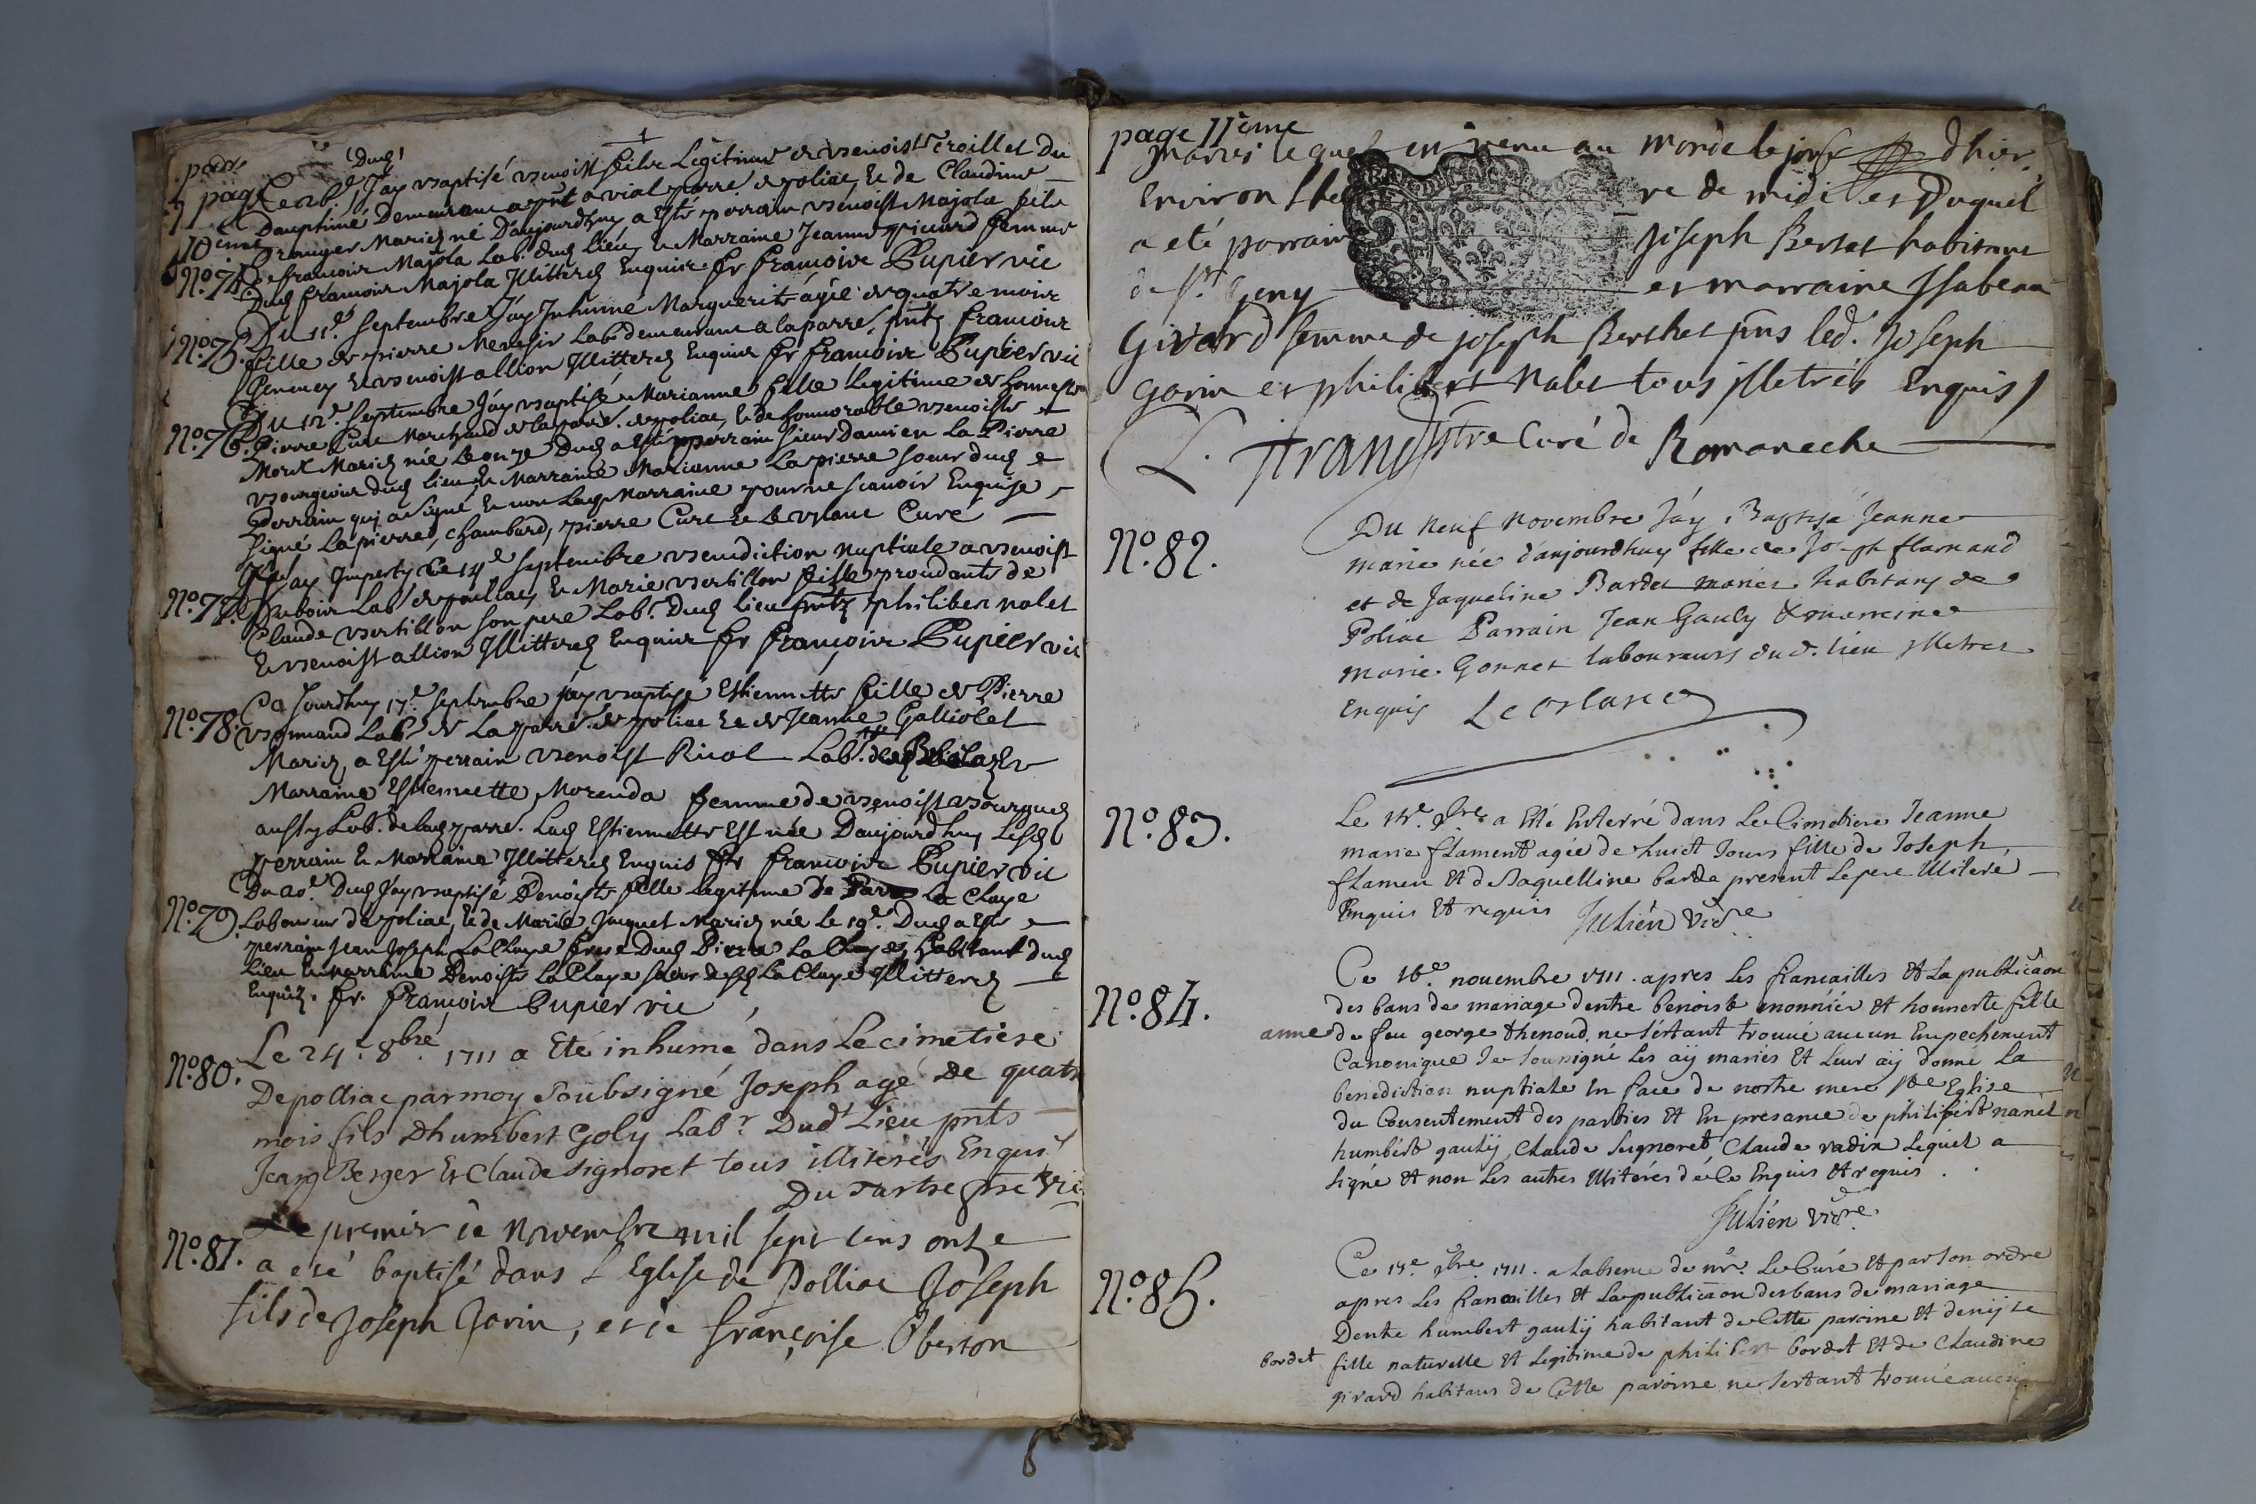 page
10eme
N°.74.
Dud
Le 2e. Jay baptisé benoist fils Legitime de benoist Croillet du
Dauphiné Demeurant a pnt a vial parre de poliac, & de Claudine
Franger Mariez né Daujourdhuy a Esté perrain benoist Majola fils
de francois Majola Lab. dud Lieu & Marraine Jeanne quicard femme
Dud francois Majola Illitterez Enquis. fr francois Pupier vic
N°.75.
Du 11e septembre Jay Inhumé Marguerite agée de quatre mois
fille de pierre Mercier Lab demeurant a la parre. pntz francois
& benoist allion Illitterez Enquis fr francois Pupier vic
N°.76.
Du 12e. septembre Jay baptisé Marianne fille Legitime de honneste
Pierre Cure Marchand de la parre. de poliac, & de honnorable benoiste
Morel Mariez née Le onze Dud a Esté perrain sieur Damien La Pierre
bourgeois dud lieu & Marraine Marianne Lapierre soeur dud
Perrain qui a signé & non Lad Marraine pour ne scavoir Enquise
signé Lapierre, chambard, pierre Cure & Le blanc Curé
N°.77.
Jay Imparty Ce 14e septembre benediction nuptiale a benoist
Dubois Lab de polliac, & Marie bertillon fille procedante de
Claude bertillon son pere Lab. Dud lieu pntz philiber nalet
& benoist allion Illitterez Enquis fr francois Pupier vic
N°.78.
Ce Jourdhuy 17e. septembre jay baptisé Estiennette fille de Pierre
Lab. de La parre. de poliac & de Jeanne Galliolet
Mariez, a Esté perrain benoist Rual Lab.
Marraine Estiennette Morenda femme de benoist
aussy Lab. de lad parre. Lad Estiennette Est née Daujourdhuy Lesd
perrain & Marraine Illitterez Enquis fr francois Pupier vic
N°.79.
Du 20e. Dud Jay baptisé Benoiste fille Legitime de La Claye
Laboureur de poliac, & de Marie Juquet Mariez née le 19e. Dud a Esté
perrain Jean Joseph La Claye frere Dud Pierre La Claye, habitant dud
Lieu & marraine Benoiste La Claye soeur desd La Claye Illitterez
Enquis. fr. francois Pupier vic
N°.80.
Le 24. 8bre. 1711 a Eté inhumé dans Le cimetiere
De polliac par moy soubsigné Joseph agé De quatre
mois fils Dhumbert Goly Labr. Dudt Lieu pnts
Jean Berger Et Claude signoret tous illiterés Enquis
Du Tartre ptre vic
N°.81.
Le premier de Novembre mil sept cens onze
a eté baptisé dans L Eglise de Polliac Joseph
fils de Joseph Jorin, et de françoise Oberson
page 11eme
mariés lequel est venu au monde le jour dhier
Environ Lheure de midi et Duquel
a eté parrain Joseph Bertet habitant
de st Geny et marraine Isabeau
Givard femme de joseph Berthet pns led. Joseph
Gorin et philibert Nalet tous illetrés Enquis
L. ptre Curé de Romaneche
N°.82.
Du Neuf Novembre Jay Baptisé Jeanne
marie née d'aujourdhuy fille de Joseph flamand
et de Jaqueline Bardet mariez habitans de
Poliac Parrain Jean Gauly & marraine
marie Gonnet laboureurs du d. lieu illetres
enquis Leblanc
N°.83.
Le 15e. 9bre a Eté Enterré dans Le Cimetiere Jeanne
marie flament agée de huict Jours fille de Joseph
flamen Et de Jaquelline barde present Le pere illiteré
Enquis Et requis Julien vicre
N°.84.
Ce 16e. novembre 1711. apres les fiancailles Et La publicaon
des bans de mariage dentre benoist monnier et honneste fille
anne de feu george thenoud, ne s'estant trouvé aucun Empechement
Canonique Je soussigné Les aÿ mariés Et Leur aÿ donné La
benediction nuptiale En face de nostre mere Ste Eglise
du Consentement des parties Et En presance de philibert nanet
humbert gaulÿ, Claude Signoret, Claude radix Lequel a
signé Et non Les autres illiterés de ce Enquis Et requis.
Julien vicre
N°.85.
Ce 17e. 9bre. 1711. a Labsence de mr. Le Curé Et par son ordre
apres Les fiancailles Et La publicaon des bans de mariage
Dentre humbert gaulÿ habitant de Cette paroisse Et denÿse
bordet fille naturelle Et Legitime de philibert bordet Et de Claudine
girard habitans de Cette paroisse ne sestant trouvé aucun